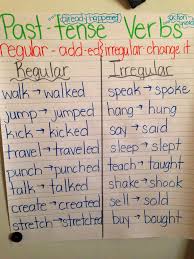 (already happened) (action words)
Past-tense Verbs
regular - add-ed irregular change it
Regular Irregular
walk → walked speak → spoke
jump → jumped hang → hung
kick → kicked say → said
travel → traveled sleep → slept
punch → punched teach → taught
talk → talked shake → shook
create → created sell → sold
stretch → stretched buy → bought